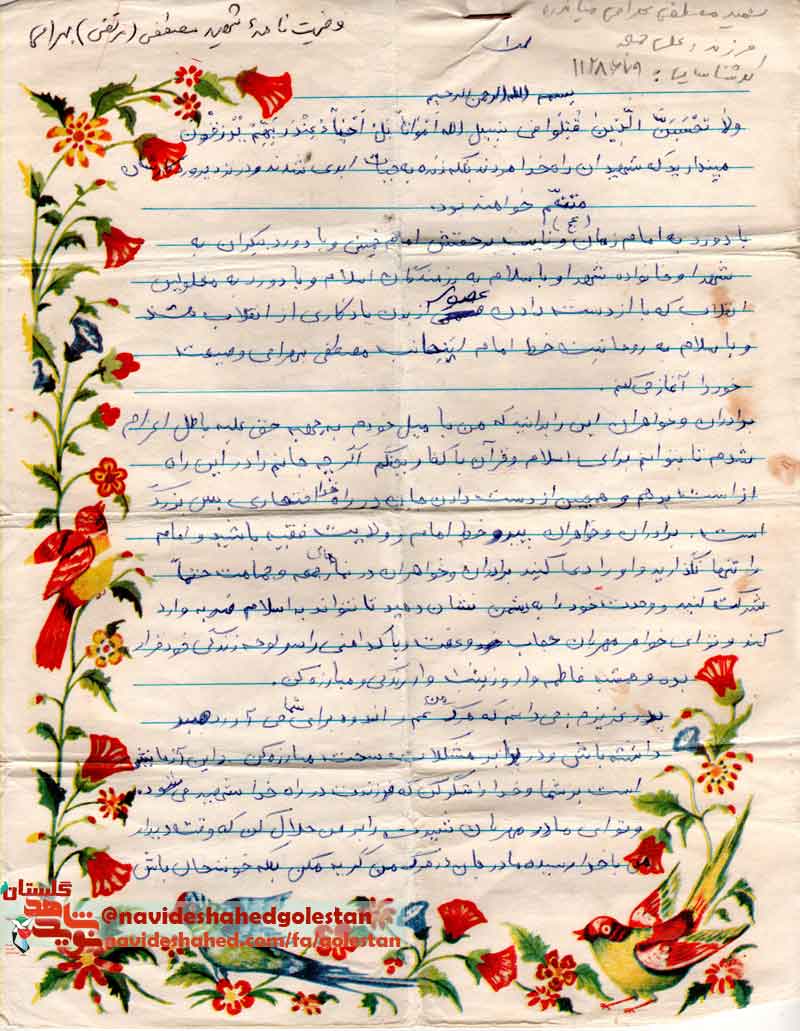 وصیت نامهٔ شهید مصطفی (مرتضی) بهرامی
شهید مصطفی بهرامی
فرزند : علی
ص ۱
بسم الله الرحمن الرحیم
ولا تحسبن الذین قتلوا فی سبیل الله امواتاً بل احیاءٌ عند ربهم یرزقون
مپندارید که شهیدان راه خدا مردند بلکه زنده به حیات ابدی شدند و در نزد پروردگارشان
متنعم خواهند بود.
با درود به امام زمان (عج) و نایب برحقش امام خمینی و با درود بیکران به
شهدا و خانواده شهدا و با سلام به رزمندگان اسلام و با درود به معلولین
انقلاب که با از دست دادن عضوی از بدن یادگاری از انقلاب شدند
و با سلام به روحانیت خط امام اینجانب مصطفی بهرامی وصیت
خود را آغاز می کنم.
برادران و خواهران این را بدانید که من با میل خودم به جبهه حق علیه باطل اعزام
شدم تا بتوانم برای اسلام و قرآن با کفار بجنگم اگر چه جانم را در این راه
از دست بدهم و همچنین از دست دادن جان در راه خدا افتخاری بس بزرگ
است. برادران و خواهران پیرو خط امام و ولایت فقیه باشید و امام
را تنها نگذارید و او را دعا کنید برادران و خواهران در نمازهای جمعه و جماعت حتماً
شرکت کنید و وحدت خود را به دشمن نشان دهید تا نتواند به اسلام ضربه وارد
کند و تو ای خواهر مهربان حجاب و عفت و پاکدامنی را سرلوحه زندگی خود قرار
بده و همیشه فاطمه وار و زینب وار زندگی و مبارزه کن.
پدر عزیزم می دانم که مرگ من غم و اندوه برای شما می آورد
داشته باش و در برابر مشکلات سخت مبارزه کن و این آزمایش
است بر شما و خدا را شکر کن که فرزندت در راه خدا شهید می شود.
و تو ای مادر مهربان شیرت را بر من حلال کن که وقت دیدار
من با خدا رسیده مادر جان در مرگ من گریه مکن بلکه خوشحال باش
نوید شاهد گلستان
@navideshahedgolestan
navideshahed.com/fa/golestan